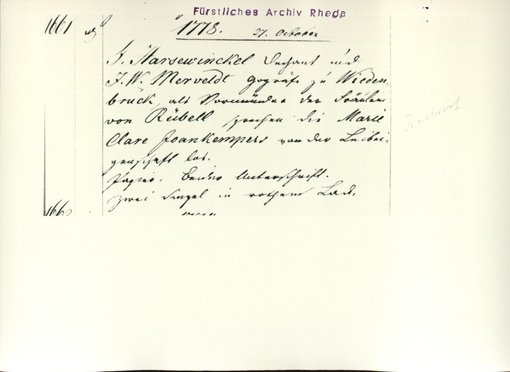 Fürstliches Archiv Rheda
1661
1778. 27. October
J. Harsewinckel Dechant und
F. W. Merveldt Gografe zu Wieden
brück, als Vormünder der Fräulein
von Rübell sprechen die Marie
Clare Joankempers von der Leibei-
genschaft los.
Papier. Beider Unterschrift.
Zwei Siegel in rothem Lack.
1662